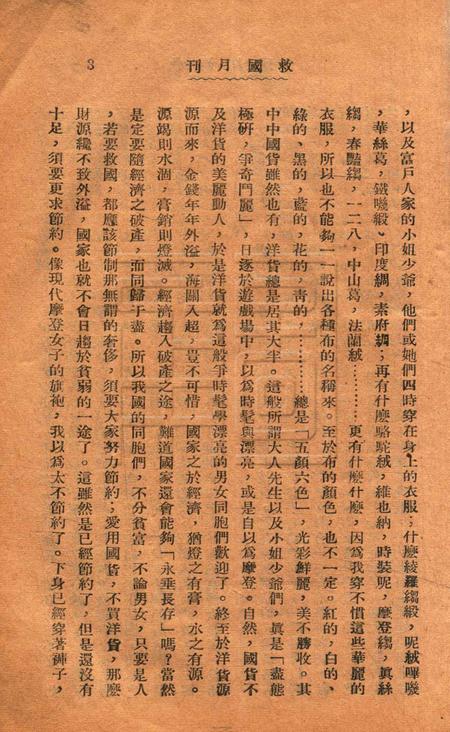 救國月刊
3
，以及富戶人家的小姐少爺，他們或她們四時穿在身上的衣服；什麽綾羅縐緞，呢絨嗶嘰
，華絲葛，鐵嘰緞、印度綢，素府綢；再有什麽駱駝絨，維也納，時裝呢，摩登縐，眞絲
縐，春豔縐，一二八，中山葛，法蘭絨…………更有什麽什麽，因爲我穿不慣這些華麗的
衣服，所以也不能夠一一說出各種布的名稱來。至於布的顏色，也不一定。紅的，白的、
綠的、黑的，藍的，花的，靑的，…………總是「五顏六色」，光彩鮮麗，美不勝收。其
中中國貨雖然也有，洋貨總是居其大半。這般所謂大人先生以及小姐少爺們，眞是「盡態
極硏，爭奇鬥麗」，日逐於遊戲場中，以爲時髦與漂亮，或是自以爲摩登。自然，國貨不
及洋貨的美麗動人，於是洋貨就爲這般爭時髦學漂亮的男女同胞們歡迎了。終至於洋貨源
源而來，金錢年年外溢，海關入超，豈不可惜，國家之於經濟，猶燈之有膏，水之有源。
源竭則水涸，膏銷則燈滅。經濟趨入破產之途，難道國家還會能夠「永垂長存」嗎？當然
是定要隨經濟之破產，而同歸于盡。所以我國的同胞們，不分貧富，不論男女，只要是人
，若要救國，都應該節制那無謂的奢侈，須要大家努力節約；愛用國貨，不買洋貨，那麽
財源纔不致外溢，國家也就不會日趨於貧弱的一途了。這雖然是已經節約了，但是還沒有
十足，須要更求節約。像現代摩登女子的旗袍，我以爲太不節約了。下身已經穿著褲子，